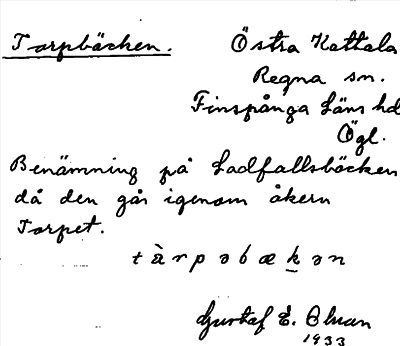 Torpbäcken. Östra Kattala
Regna sn.
Finspånga läns hd
Ögl.
Benämning på Ladfallsbäcken
då den går igenom åkern
Torpet.
tàrpəbækən
Gustaf E. Olman
1933